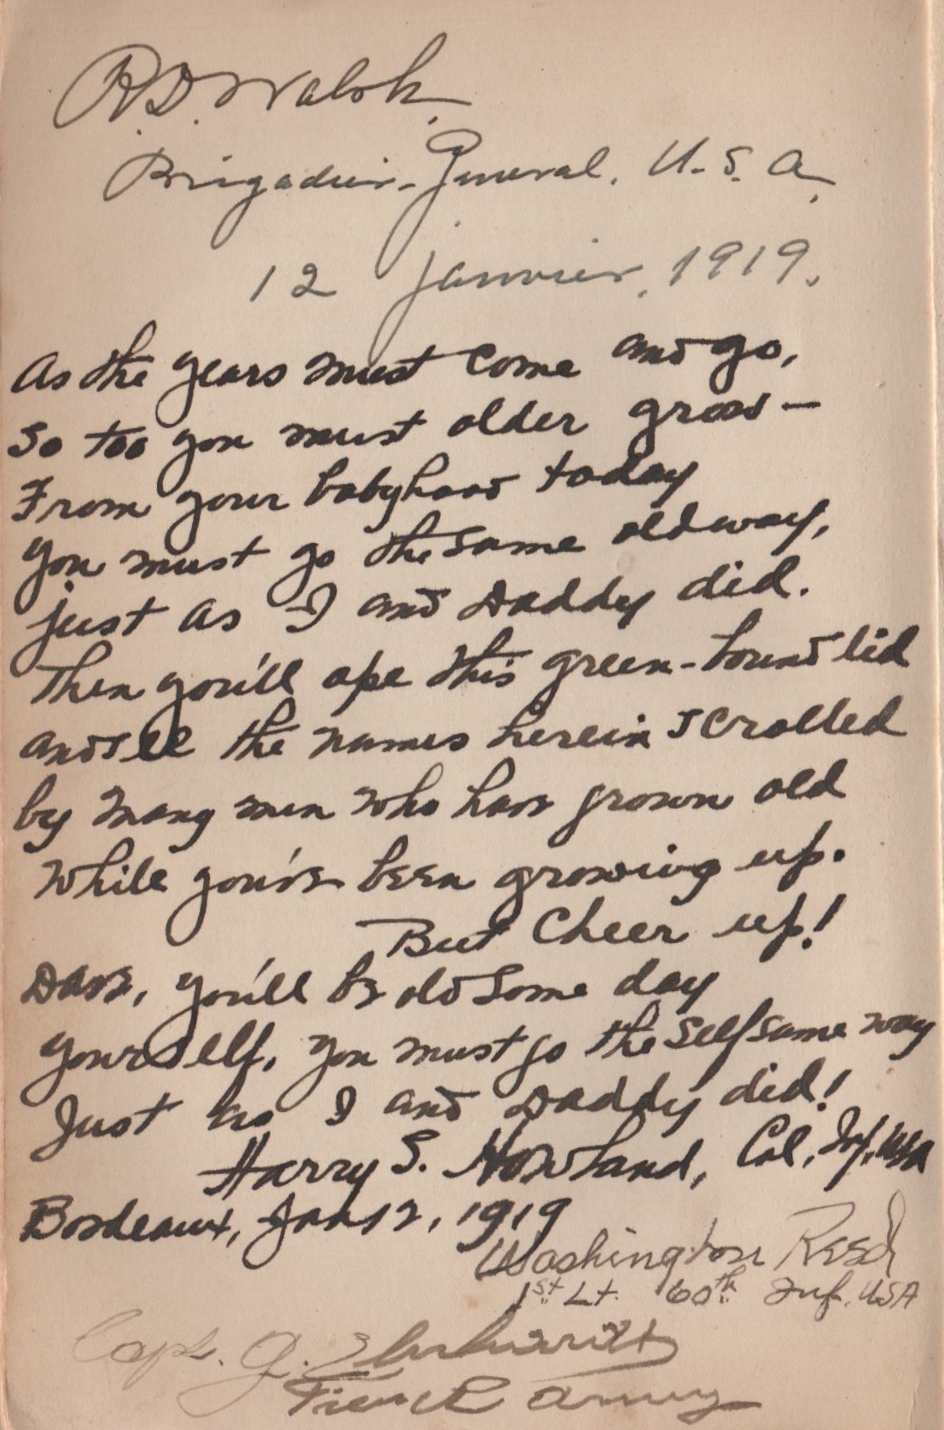 R. D. Walsh.
Brigadier-General. U.S.A.
12 janvier, 1919.
As the years must come and go,
So too you must older grow—
From your babyhood today
you must go the same old way,
just as I and Daddy did.
Then you'll ope this green-bound lid
and see the names herein scrolled
by many men who have grown old
while you've been growing up.
But cheer up!
Dave, you'll be old some day
yourself, you must go the selfsame way
Just as I and Daddy did!
Harry S. Howland, Col, Inf, USA
Bordeaux, Jan 12, 1919
Washington Reed
1st Lt. 60th Inf. USA
Capt. G.
French Army